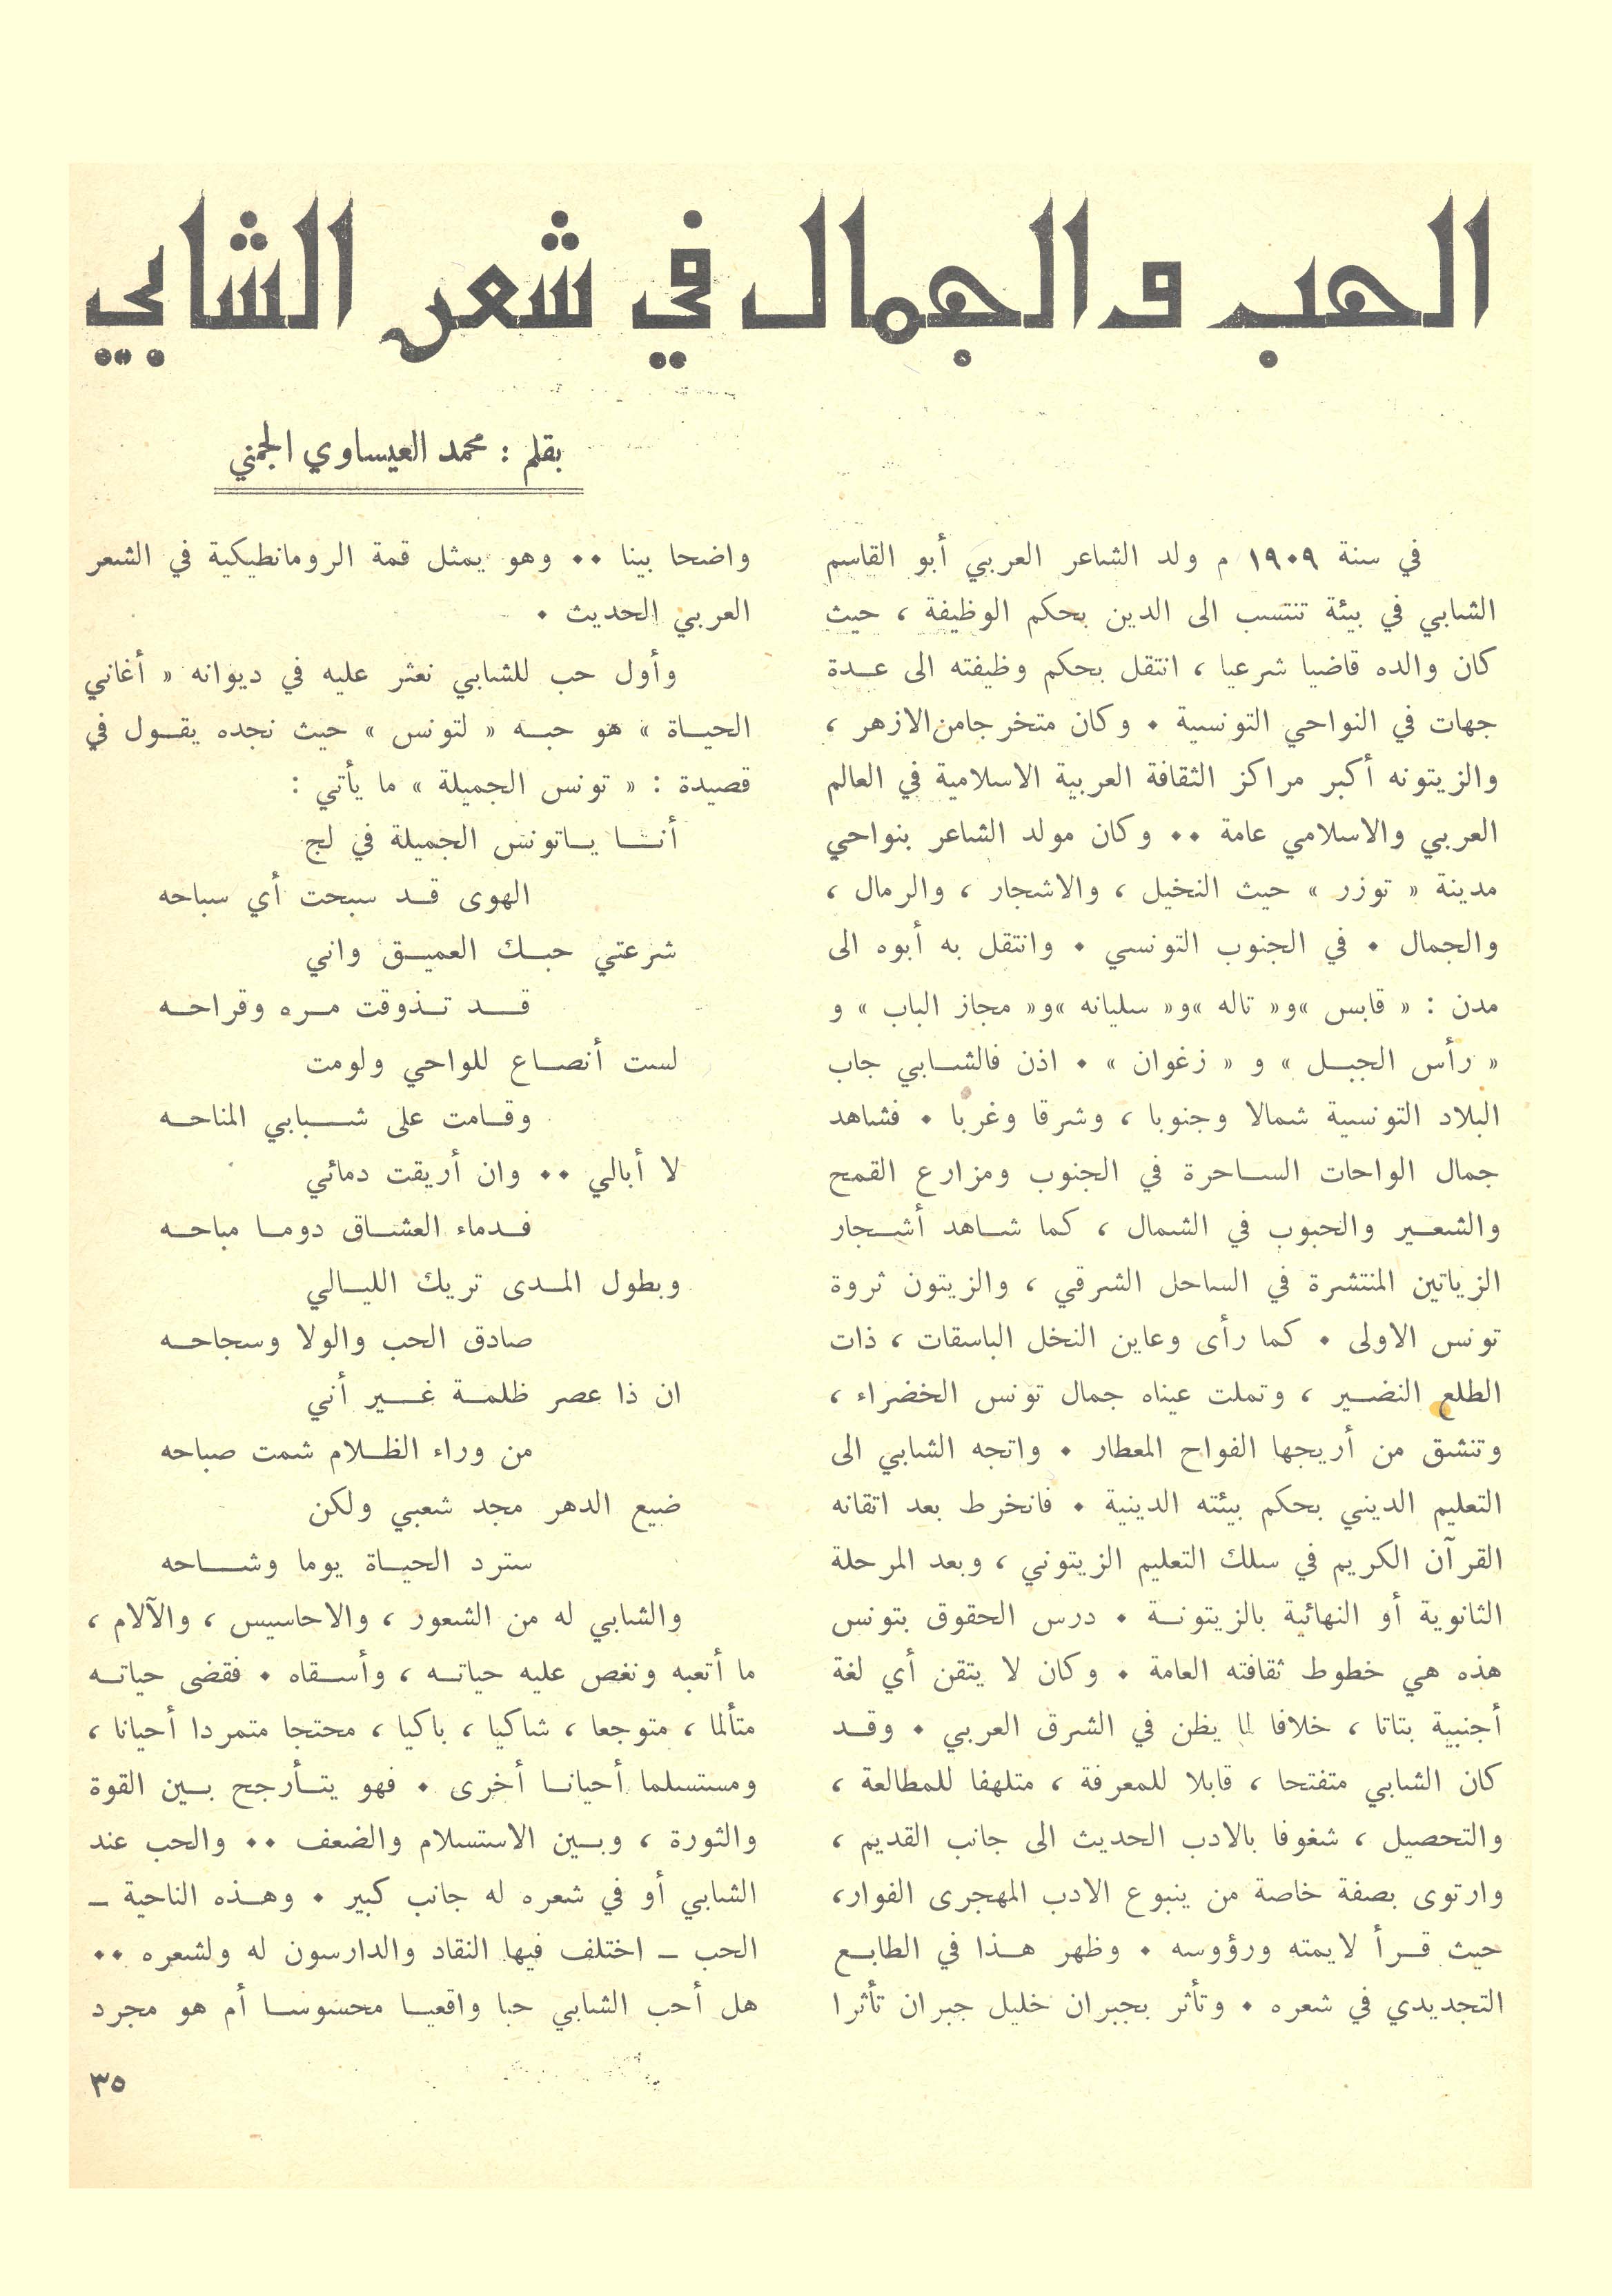 الحب والجمال في شعر الشابي
بقلم : محمد العيساوي الجمني
في سنة ١٩٠٩ م ولد الشاعر العربي أبو القاسم
الشابي في بيئة تنتسب الى الدين بحكم الوظيفة ، حيث
كان والده قاضيا شرعيا ، انتقل بحكم وظيفته الى عدة
جهات في النواحي التونسية ٠ وكان متخرجا من الازهر ،
والزيتونه أكبر مراكز الثقافة العربية الاسلامية في العالم
العربي والاسلامي عامة ٠٠ وكان مولد الشاعر بنواحي
مدينة « توزر » حيث النخيل ، والاشجار ، والرمال ،
والجمال ٠ في الجنوب التونسي ٠ وانتقل به أبوه الى
مدن : « قابس »و« تاله »و« سليانه »و« مجاز الباب » و
« رأس الجبل » و « زغوان » ٠ اذن فالشابي جاب
البلاد التونسية شمالا وجنوبا ، وشرقا وغربا ٠ فشاهد
جمال الواحات الساحرة في الجنوب ومزارع القمح
والشعير والحبوب في الشمال ، كما شاهد أشجار
الزياتين المنتشرة في الساحل الشرقي ، والزيتون ثروة
تونس الاولى ٠ كما رأى وعاين النخل الباسقات ، ذات
الطلع النضير ، وتملت عيناه جمال تونس الخضراء ،
وتنشق من أريجها الفواح المعطار ٠ واتجه الشابي الى
التعليم الديني بحكم بيئته الدينية ٠ فانخرط بعد اتقانه
القرآن الكريم في سلك التعليم الزيتوني ، وبعد المرحلة
الثانوية أو النهائية بالزيتونة ٠ درس الحقوق بتونس
هذه هي خطوط ثقافته العامة ٠ وكان لا يتقن أي لغة
أجنبية بتاتا ، خلافا لما يظن في الشرق العربي ٠ وقد
كان الشابي متفتحا ، قابلا للمعرفة ، متلهفا للمطالعة ،
والتحصيل ، شغوفا بالادب الحديث الى جانب القديم ،
وارتوى بصفة خاصة من ينبوع الادب المهجرى الفوار،
حيث قرأ لايمته ورؤوسه ٠ وظهر هذا في الطابع
التجديدي في شعره ٠ وتأثر بجبران خليل جبران تأثرا
واضحا بينا ٠٠ وهو يمثل قمة الرومانطيكية في الشعر
العربي الحديث ٠
وأول حب للشابي نعثر عليه في ديوانه « أغاني
الحياة » هو حبه « لتونس » حيث نجده يقول في
قصيدة : « تونس الجميلة » ما يأتي :
أنا ياتونس الجميلة في لج
الهوى قد سبحت أي سباحه
شرعتي حبك العميق واني
قد تذوقت مره وقراحه
لست أنصاع للواحي ولومت
وقامت على شبابي المناحه
لا أبالي ٠٠ وان أريقت دمائي
فدماء العشاق دوما مباحه
وبطول المدى تريك الليالي
صادق الحب والولا وسجاحه
ان ذا عصر ظلمة غير أني
من وراء الظلام شمت صباحه
ضيع الدهر مجد شعبي ولكن
سترد الحياة يوما وشاحه
والشابي له من الشعور ، والاحاسيس ، والآلام ،
ما أتعبه ونغص عليه حياته ، وأسقاه ٠ فقضى حياته
متألما ، متوجعا ، شاكيا ، باكيا ، محتجا متمردا أحيانا ،
ومستسلما أحيانا أخرى ٠ فهو يتأرجح بين القوة
والثورة ، وبين الاستسلام والضعف ٠٠ والحب عند
الشابي أو في شعره له جانب كبير ٠ وهذه الناحية ـ
الحب ـ اختلف فيها النقاد والدارسون له ولشعره ٠٠
هل أحب الشابي حبا واقعيا محسوسا أم هو مجرد
٣٥